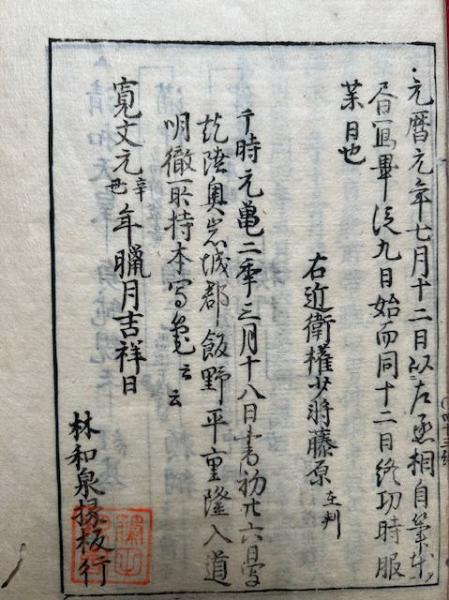 元暦元年七月十二日以右丞相自筆本
書冩畢従九日始而同十二日終功時服
日也
右近衛權少将藤原在判
于時元亀二季三月十八日書初廿六日
於陸奥岩城郡飯野平重隆入道
明徹所持本写云云
寛文元辛丑年臘月吉祥日
林和泉掾板行